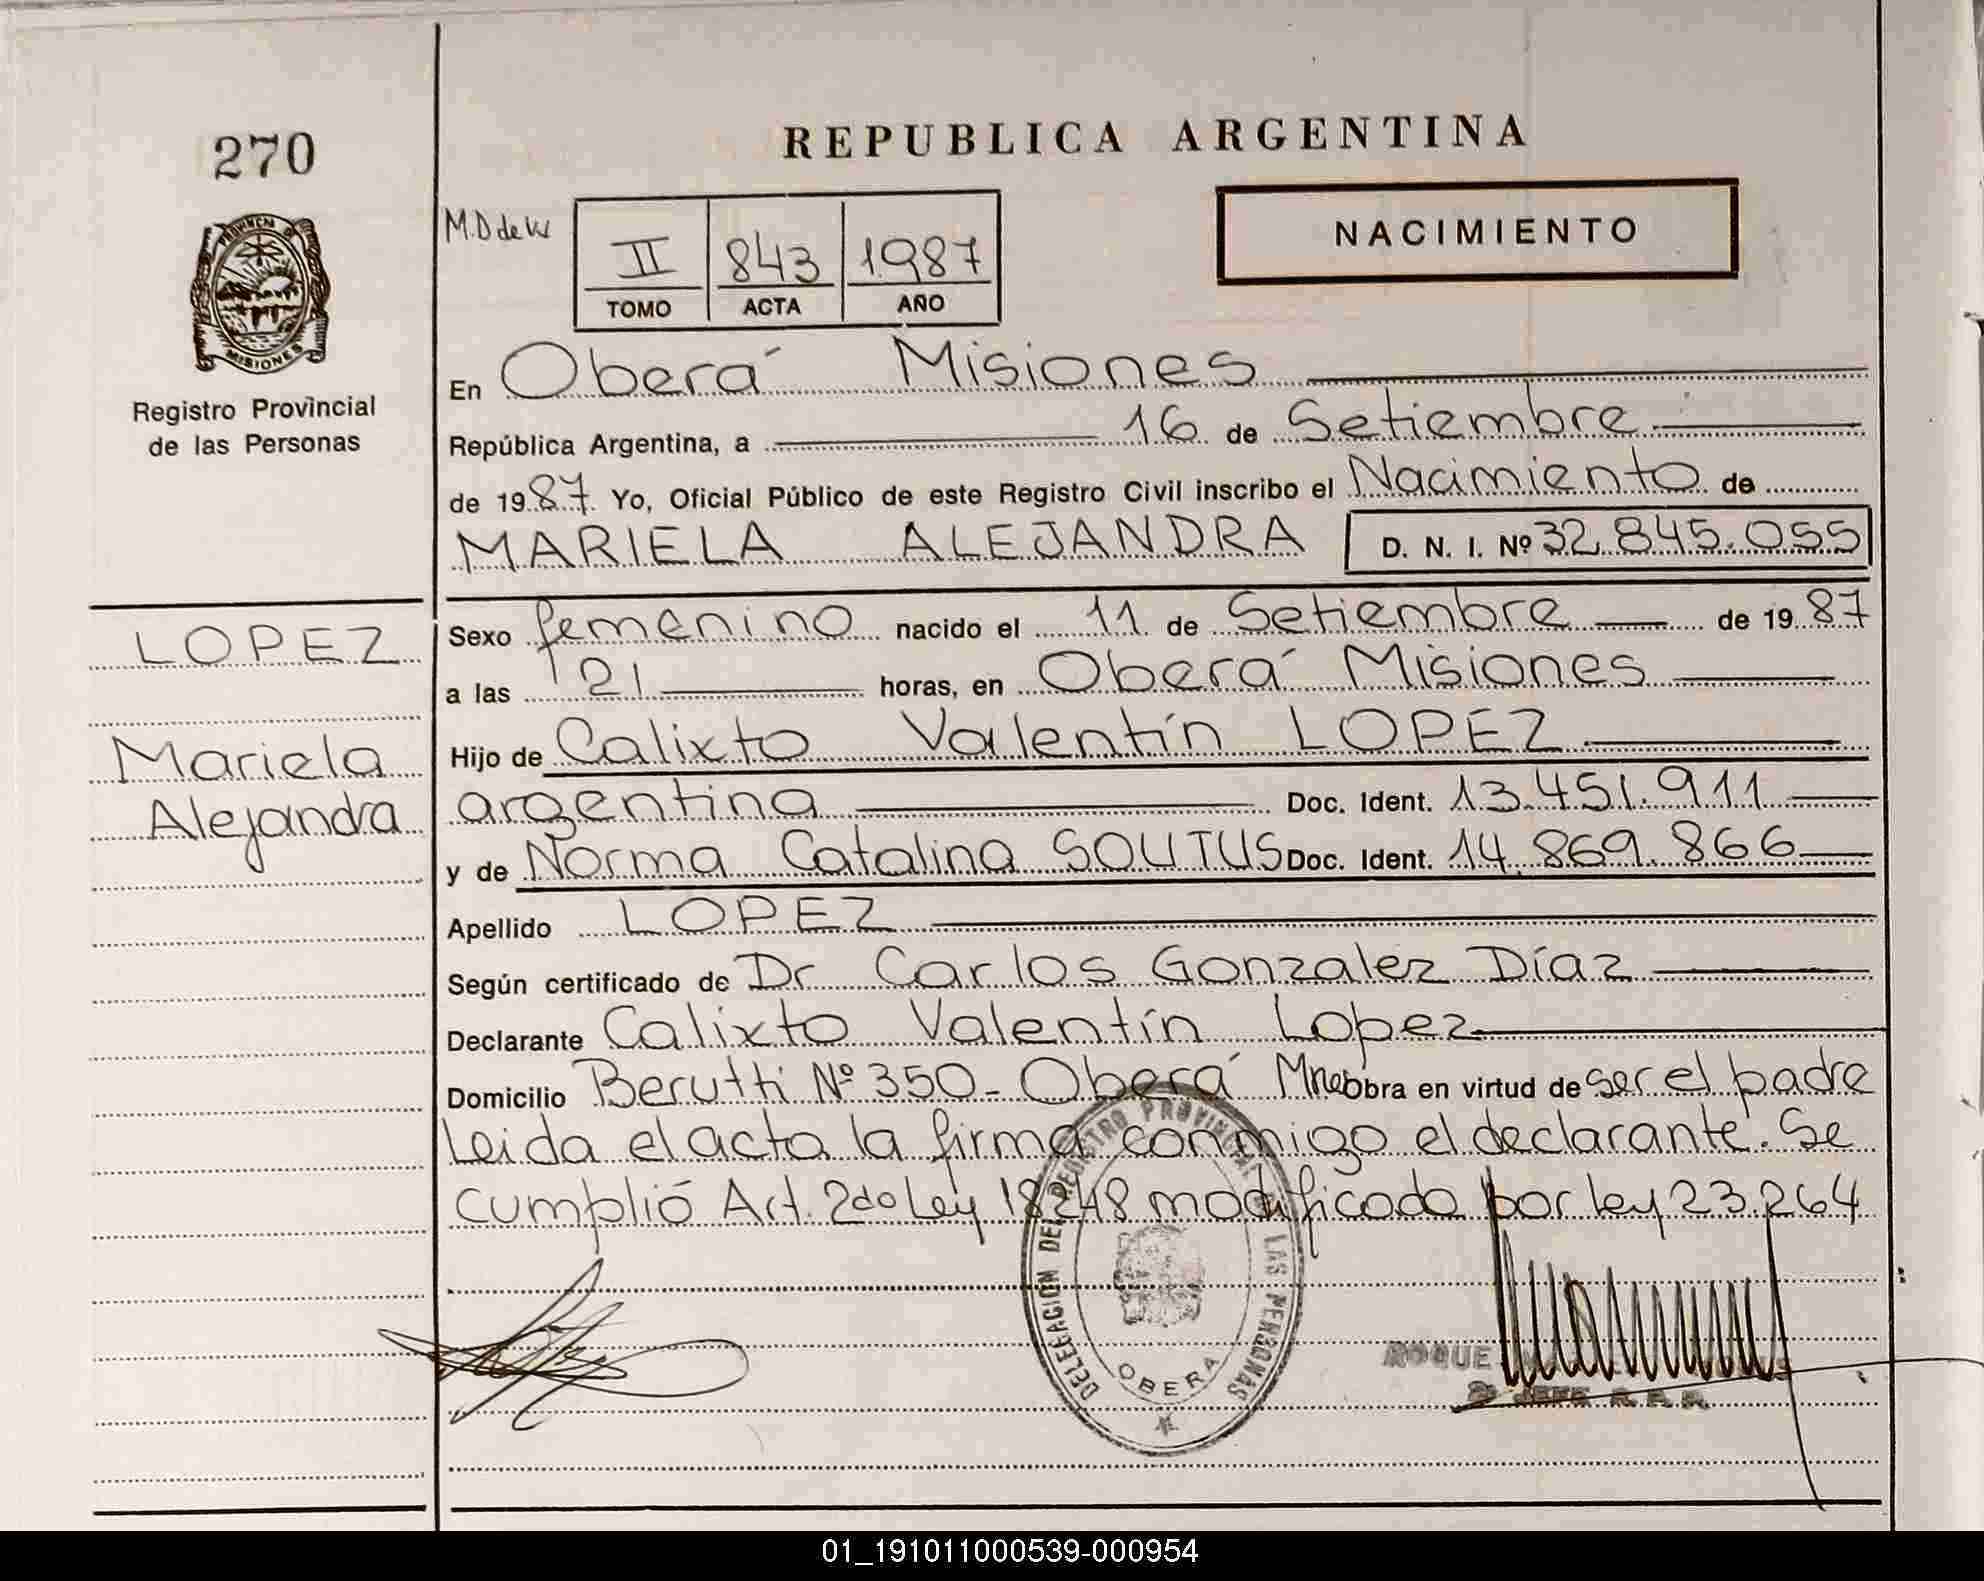 270
PROVINCIA DE
MISIONES
Registro Provincial
de las Personas
LOPEZ
Mariela
Alejandra
REPUBLICA ARGENTINA
M.D de W
II 843 1987
TOMO ACTA AÑO
NACIMIENTO
En Oberá Misiones
República Argentina, a 16 de Setiembre
de 1987. Yo, Oficial Público de este Registro Civil inscribo el Nacimiento de
MARIELA ALEJANDRA D. N. I. Nº 32.845.055
Sexo femenino nacido el 11 de Setiembre de 1987
a las 21 horas, en Oberá Misiones
Hijo de Calixto Valentín LOPEZ
argentina Doc. Ident. 13.451.911
y de Norma Catalina SOLITUS Doc. Ident. 14.869.866
Apellido LOPEZ
Según certificado de Dr Carlos Gonzalez Díaz
Declarante Calixto Valentín Lopez
Domicilio Berutti Nº 350 - Oberá Mnes obra en virtud de ser el padre
Leida el acta la firma conmigo el declarante. Se
cumplió Art. 2do Ley 18248 modificado por ley 23.264
DELEGACION DEL REGISTRO PROVINCIAL DE LAS PERSONAS
OBERA
ROQUE
2º JEFE R. P. P.
01_191011000539-000954